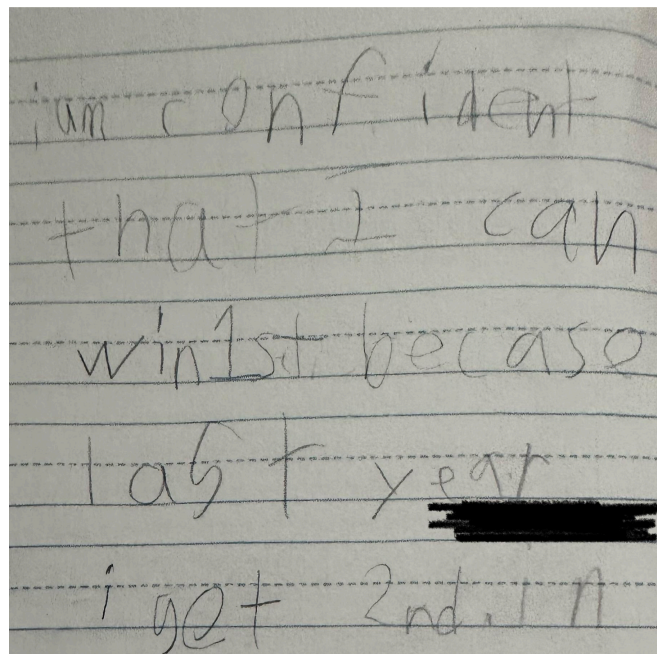 i am confident
that I can
win 1st. becase
last year
i get 2nd. in